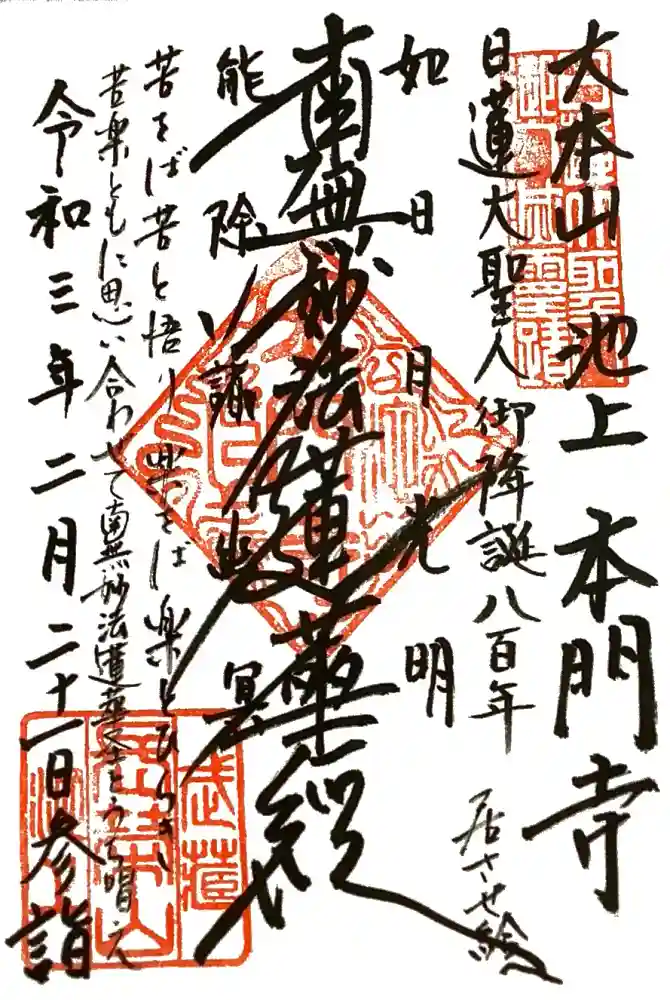 大本山 池上 本門寺
日蓮大聖人御降誕八百年
居させ給
如日月光明
南無妙法蓮華経
能除諸幽冥
苦をば苦と悟り楽をば楽とひらき
苦楽ともに思い合わせて南無妙法蓮華経とうち唱え
令和三年二月二十一日参詣